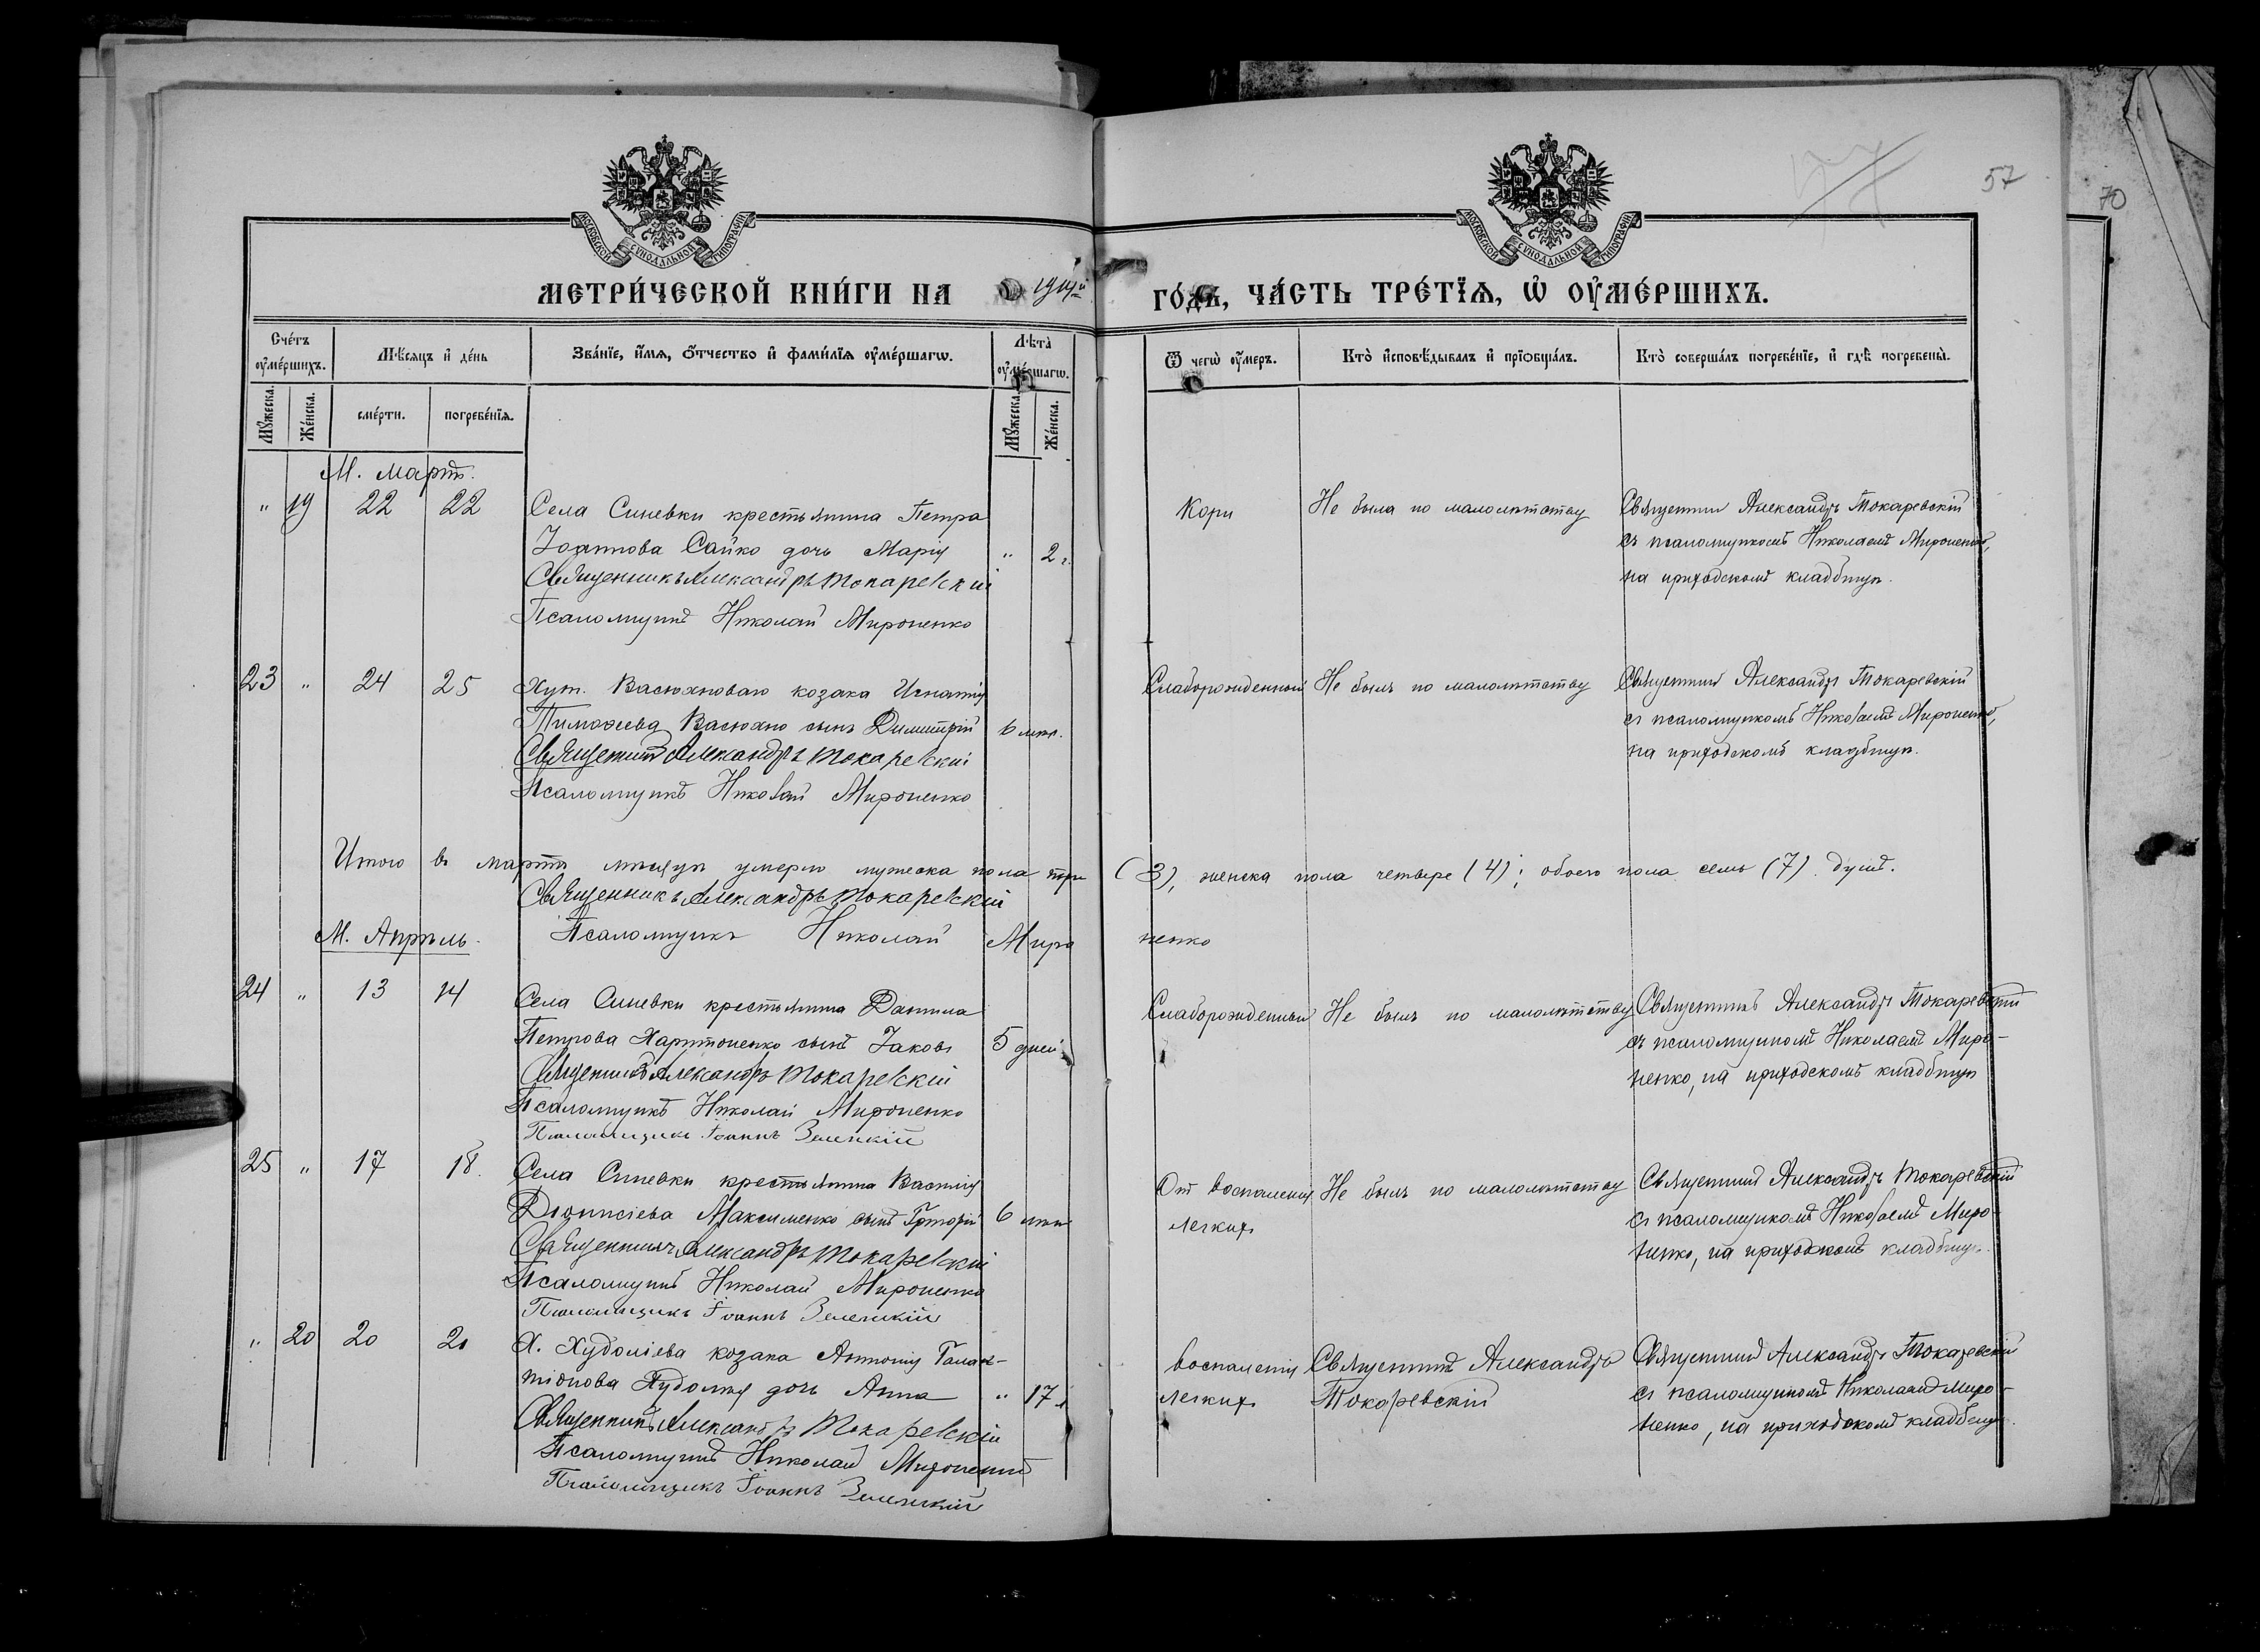 МОСКОВСКОЙ СУНОДАЛЬНОЙ ТИПОГРАФІИ
МОСКОВСКОЙ СУНОДАЛЬНОЙ ТИПОГРАФІИ
57
70
МЕТРИ́ЧЕСКОЙ КНИ́ГИ НА 1914й ГО́ДЪ, ЧА́СТЬ ТРЕ́ТЇѦ, Ѡ҆ ОУ҆МЕ́РШИХЪ.
Сче́тъ оу҆ме́ршихъ.
Мѣ́сяцъ и҆ де́нь
Зва́нїе, и҆́мѧ, ѻ҆́тчество и҆ фами́лїѧ оу҆ме́ршагѡ.
Лѣта̀ оу҆ме́ршагѡ.
Ѿ чегѡ̀ оу҆́меръ.
Кто̀ и҆сповѣ́дывалъ и҆ прїѡбща́лъ.
Кто̀ соверша́лъ погребе́нїе, и҆ гдѣ̀ погребены̀.
Мꙋ́жеска.
Же́нска.
сме́рти.
погребе́нїѧ.
Мꙋ́жеска.
Же́нска.
М. Мартъ.
" 19 22 22 Села Синевки крестьянина Петра
Іоаннова Сайко дочь Марія " 2 г.
Священникъ Александръ Токаревскій
Псаломщикъ Николай Мироненко
Кори
Не была по малолѣтству
Священникъ Александръ Токаревскій
съ псаломщикомъ Николаемъ Мироненко,
на приходскомъ кладбищѣ.
23 " 24 25 Хут. Васюхноваго козака Игнатія
Тимоѳеева Васюхно сынъ Димитрій 6 мѣс.
Священникъ Александръ Токаревскій
Псаломщикъ Николай Мироненко
Слаборожденный
Не былъ по малолѣтству
Священникъ Александръ Токаревскій
съ псаломщикомъ Николаемъ Мироненко,
на приходскомъ кладбищѣ.
Итого въ мартѣ мѣсяцѣ умерло мужеска пола три (3), женска пола четыре (4); обоего пола семь (7) душъ.
Священникъ Александръ Токаревскій
Псаломщикъ Николай Мироненко
М. Апрѣль.
24 " 13 14 Села Синевки крестьянина Даниила
Петрова Харитоненко сынъ Іаковъ 5 дней
Священникъ Александръ Токаревскій
Псаломщикъ Николай Мироненко
Псаломщикъ Іоаннъ Зеленскій
Слаборожденный
Не былъ по малолѣтству
Священникъ Александръ Токаревскій
съ псаломщикомъ Николаемъ Миро-
ненко, на приходскомъ кладбищѣ
25 " 17 18. Села Синевки крестьянина Василія
Діонисіева Максименко сынъ Григорій 6 мѣс
Священникъ Александръ Токаревскій
Псаломщикъ Николай Мироненко
Псаломщикъ Іоаннъ Зеленскій
От воспаленія
легкихъ
Не былъ по малолѣтству
Священникъ Александръ Токаревскій
съ псаломщикомъ Николаемъ Миро-
ненко, на приходскомъ кладбищѣ.
" 20 20 21 Х. Худоліева козака Антонія Галак-
тіонова Худолія дочь Анна " 17
Священникъ Александръ Токаревскій
Псаломщикъ Николай Мироненко
Псаломщикъ Іоаннъ Зеленскій
воспаленія
легкихъ
Священникъ Александръ
Токаревскій
Священникъ Александръ Токаревскій
съ псаломщикомъ Николаемъ Миро-
ненко, на приходскомъ кладбищѣ.